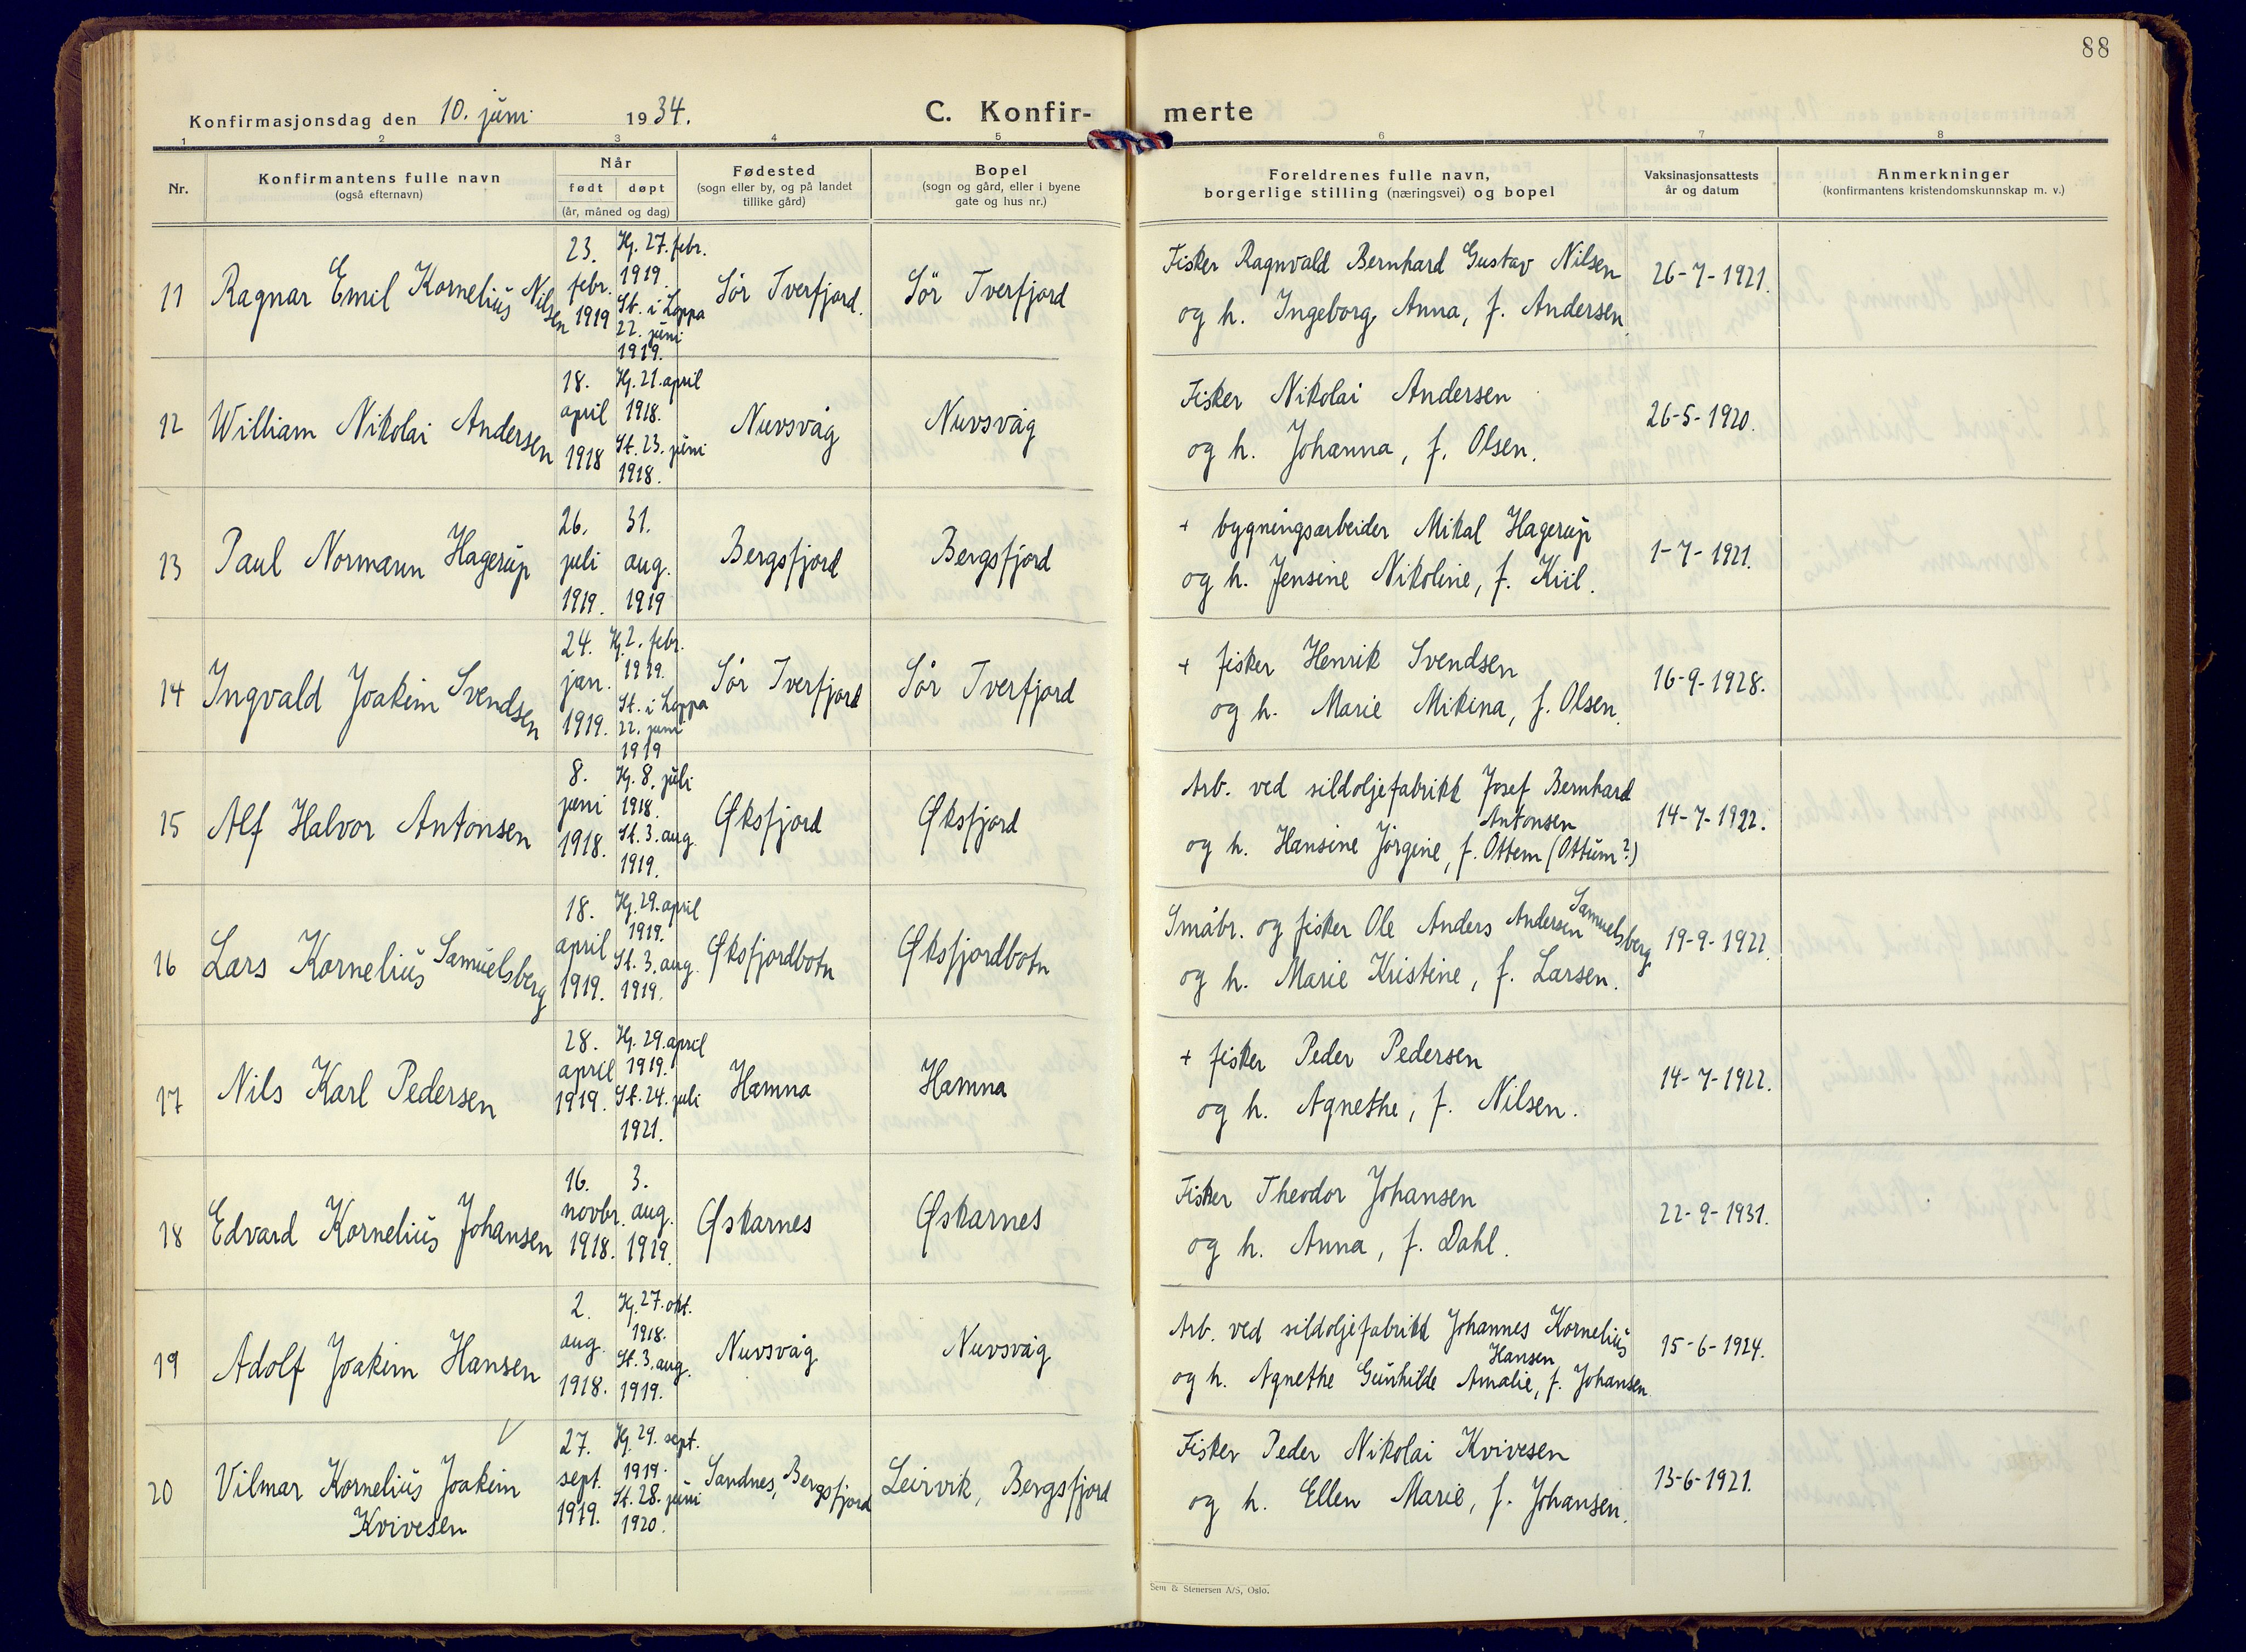 88
Konfirmasjonsdag den 10. juni 1934.
C. Konfir-
merte
1 2 3 4 5 6 7 8
Nr.
Konfirmantens fulle navn
(også efternavn)
Når
født døpt
(år, måned og dag)
Fødested
(sogn eller by, og på landet
tillike gård)
Bopel
(sogn og gård, eller i byene
gate og hus nr.)
Foreldrenes fulle navn,
borgerlige stilling (næringsvei) og bopel
Vaksinasjonsattests
år og datum
Anmerkninger
(konfirmantens kristendomskunnskap m. v.)
11
Ragnar Emil Kornelius Nilsen
23.
febr.
1919
Hj. 27. febr.
1919.
St. i Loppa
22. juni
1919.
Sör Tverfjord.
Sör Tverfjord
Fisker Ragnvald Bernhard Gustav Nilsen
og h. Ingeborg Anna, f. Andersen.
26-7-1921.
12
William Nikolai Andersen
18.
april
1918
Hj. 21. april
1918.
St. 23. juni
1918.
Nuvsvåg
Nuvsvåg
Fisker Nikolai Andersen
og h. Johanna, f. Olsen.
26-5-1920.
13
Paul Normann Hagerup
26.
juli
1919.
31.
aug.
1919
Bergsfjord
Bergsfjord
+ bygningsarbeider Mikal Hagerup
og h. Jensine Nikoline, f. Kiil.
1-7-1921.
14
Ingvald Joakim Svendsen
24.
jan.
1919.
Hj. 2. febr.
1919.
St. i Loppa
22. juni
1919
Sör Tverfjord
Sör Tverfjord
+ fisker Henrik Svendsen
og h. Marie Mikina, f. Olsen.
16-9-1928.
15
Alf Halvor Antonsen
8.
juni
1918.
Hj. 8. juli
1918.
St. 3. aug.
1919.
Øksfjord
Øksfjord
Arb. ved sildoljefabrikk Josef Bernhard
Antonsen
og h. Hansine Jörgine, f. Ottem (Ottum?)
14-7-1922.
16
Lars Kornelius Samuelsberg
18.
april
1919.
Hj. 29. april
1919.
St. 3. aug.
1919.
Øksfjordbotn
Øksfjordbotn
Småbr. og fisker Ole Anders Andersen Samuelsberg
og h. Marie Kristine, f. Larsen.
19-9-1922.
17
Nils Karl Pedersen
28.
april
1919.
Hj. 29. april
1919.
St. 24. juli
1921.
Hamna
Hamna
+ fisker Peder Pedersen
og h. Agnethe, f. Nilsen.
14-7-1922.
18
Edvard Kornelius Johansen
16.
novbr.
1918.
3.
aug.
1919.
Øskarnes
Øskarnes
Fisker Theodor Johansen
og h. Anna, f. Dahl.
22-9-1931.
19
Adolf Joakim Hansen
2.
aug.
1918.
Hj. 27. okt.
1918.
St. 3. aug.
1919.
Nuvsvåg
Nuvsvåg
Arb. ved sildoljefabrikk Johannes Kornelius
Hansen
og h. Agnethe Gunhilde Amalie, f. Johansen
15-6-1924.
20
Vilmar Kornelius Joakim
Kvivesen
27.
sept.
1919.
Hj. 29. sept.
1919.
St. 28. juni
1920.
Sandnes, Bergsfjord
Leirvik, Bergsfjord
Fisker Peder Nikolai Kvivesen
og h. Ellen Marie, f. Johansen.
13-6-1921.
Sem & Stenersen A/S, Oslo.